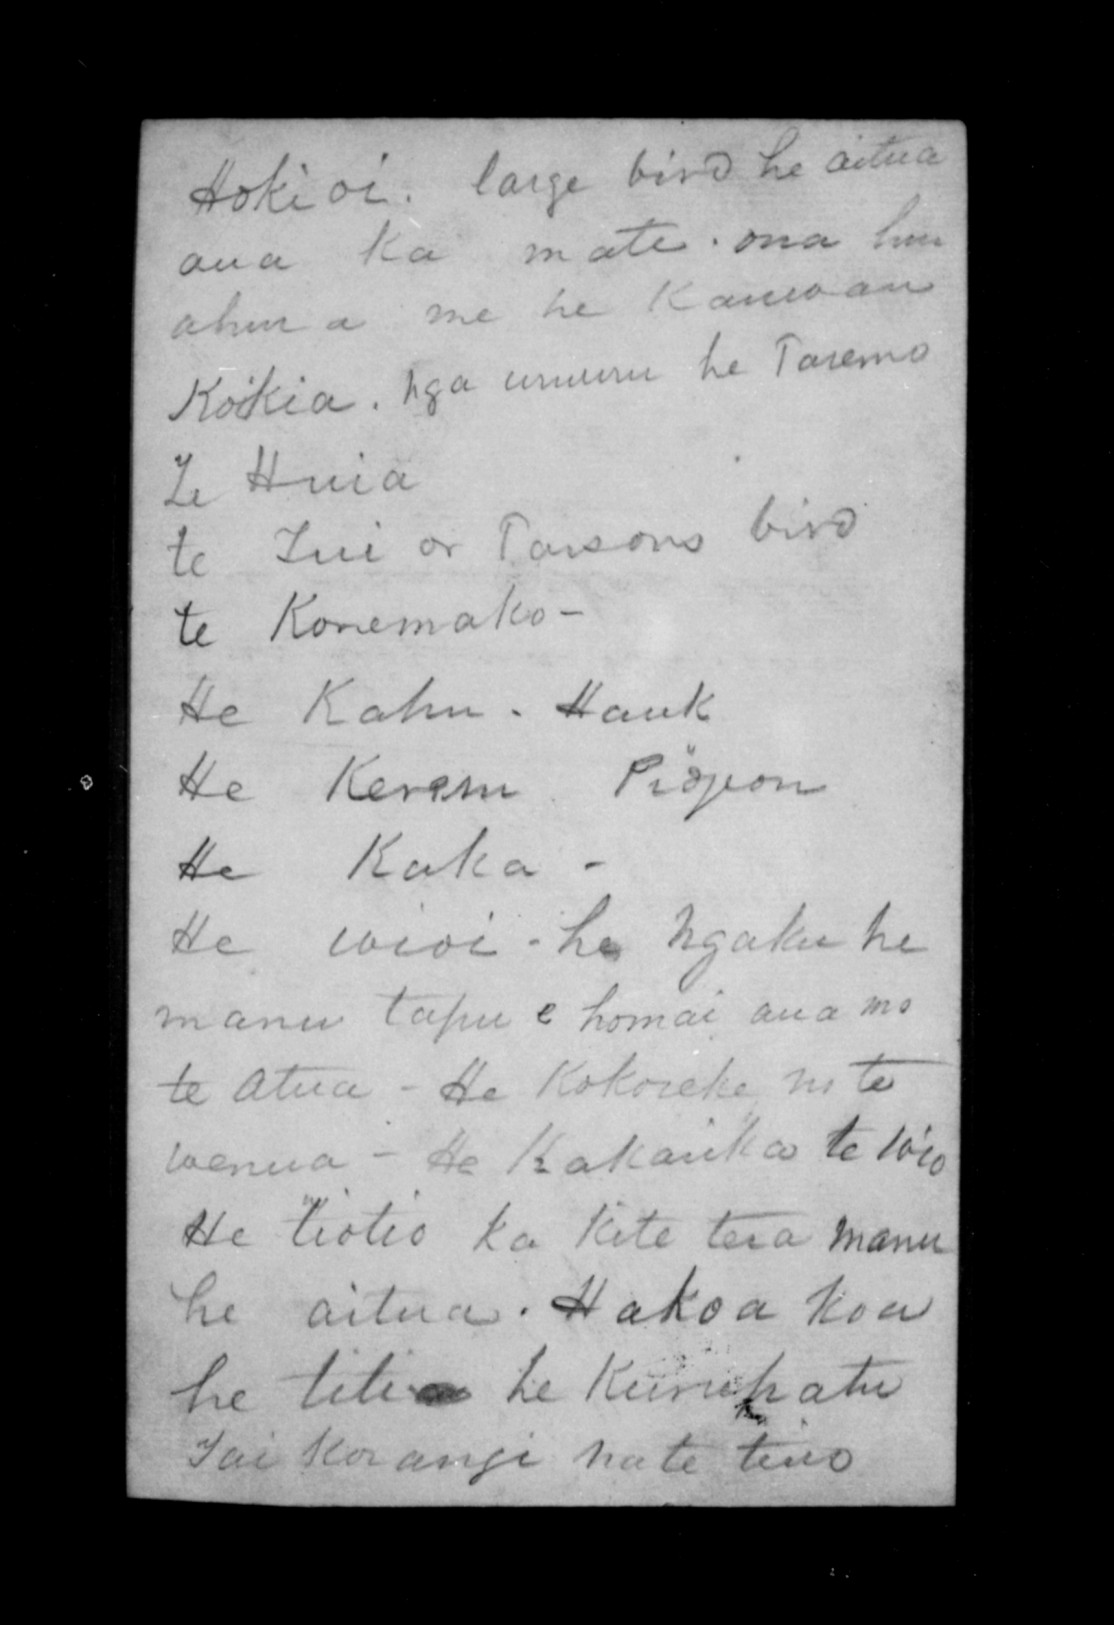 Hokioi. large bird he aitua
ana ka mate. ona huru
ahua me he Kauwau
Kokia. nga uruuru he Taremo
Te Huia
te Tui or Parsons bird
te Koremako -
He Kahu. Hauk
He Kereru Pidjeon
He Kaka -
He wioi - he Ngaku he
manu tapu e homai ana mo
te atua - He Kokoreke no te
wenua - He Kakarika te wio
He tiotio ka kite tera manu
he aitua. Hakoakoa
he titi he Kuruhatu
Tai Korangi na te tino